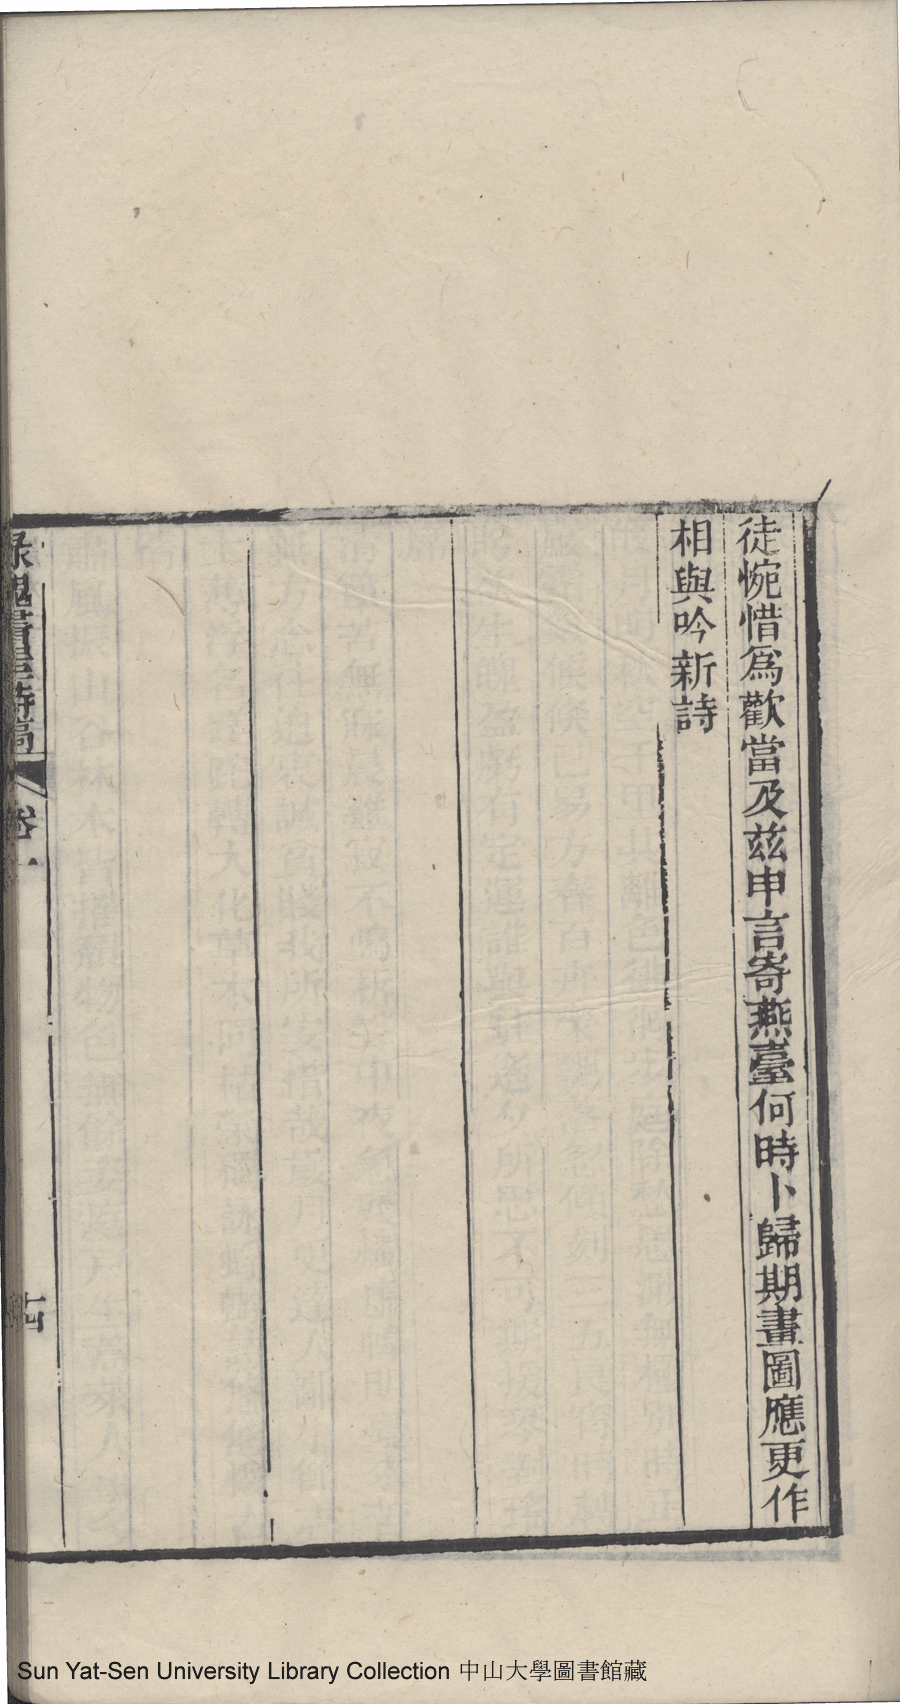 徒惋惜為歡當及兹申言寄燕臺何時卜歸期畫圖應更作
相與吟新詩
卷一
Sun Yat-Sen University Library Collection 中山大學圖書館藏